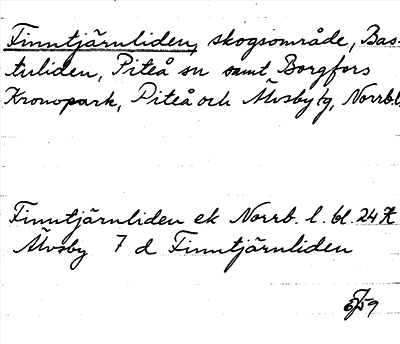 Finntjärnliden, skogsområde, Bas-
tuliden, Piteå sn samt Borgfors
Kronopark, Piteå och Älvsby sg, Norrb.l.
Finntjärnliden ek Norrb. l. bl. 24
Älvsby 7 d Finntjärnliden